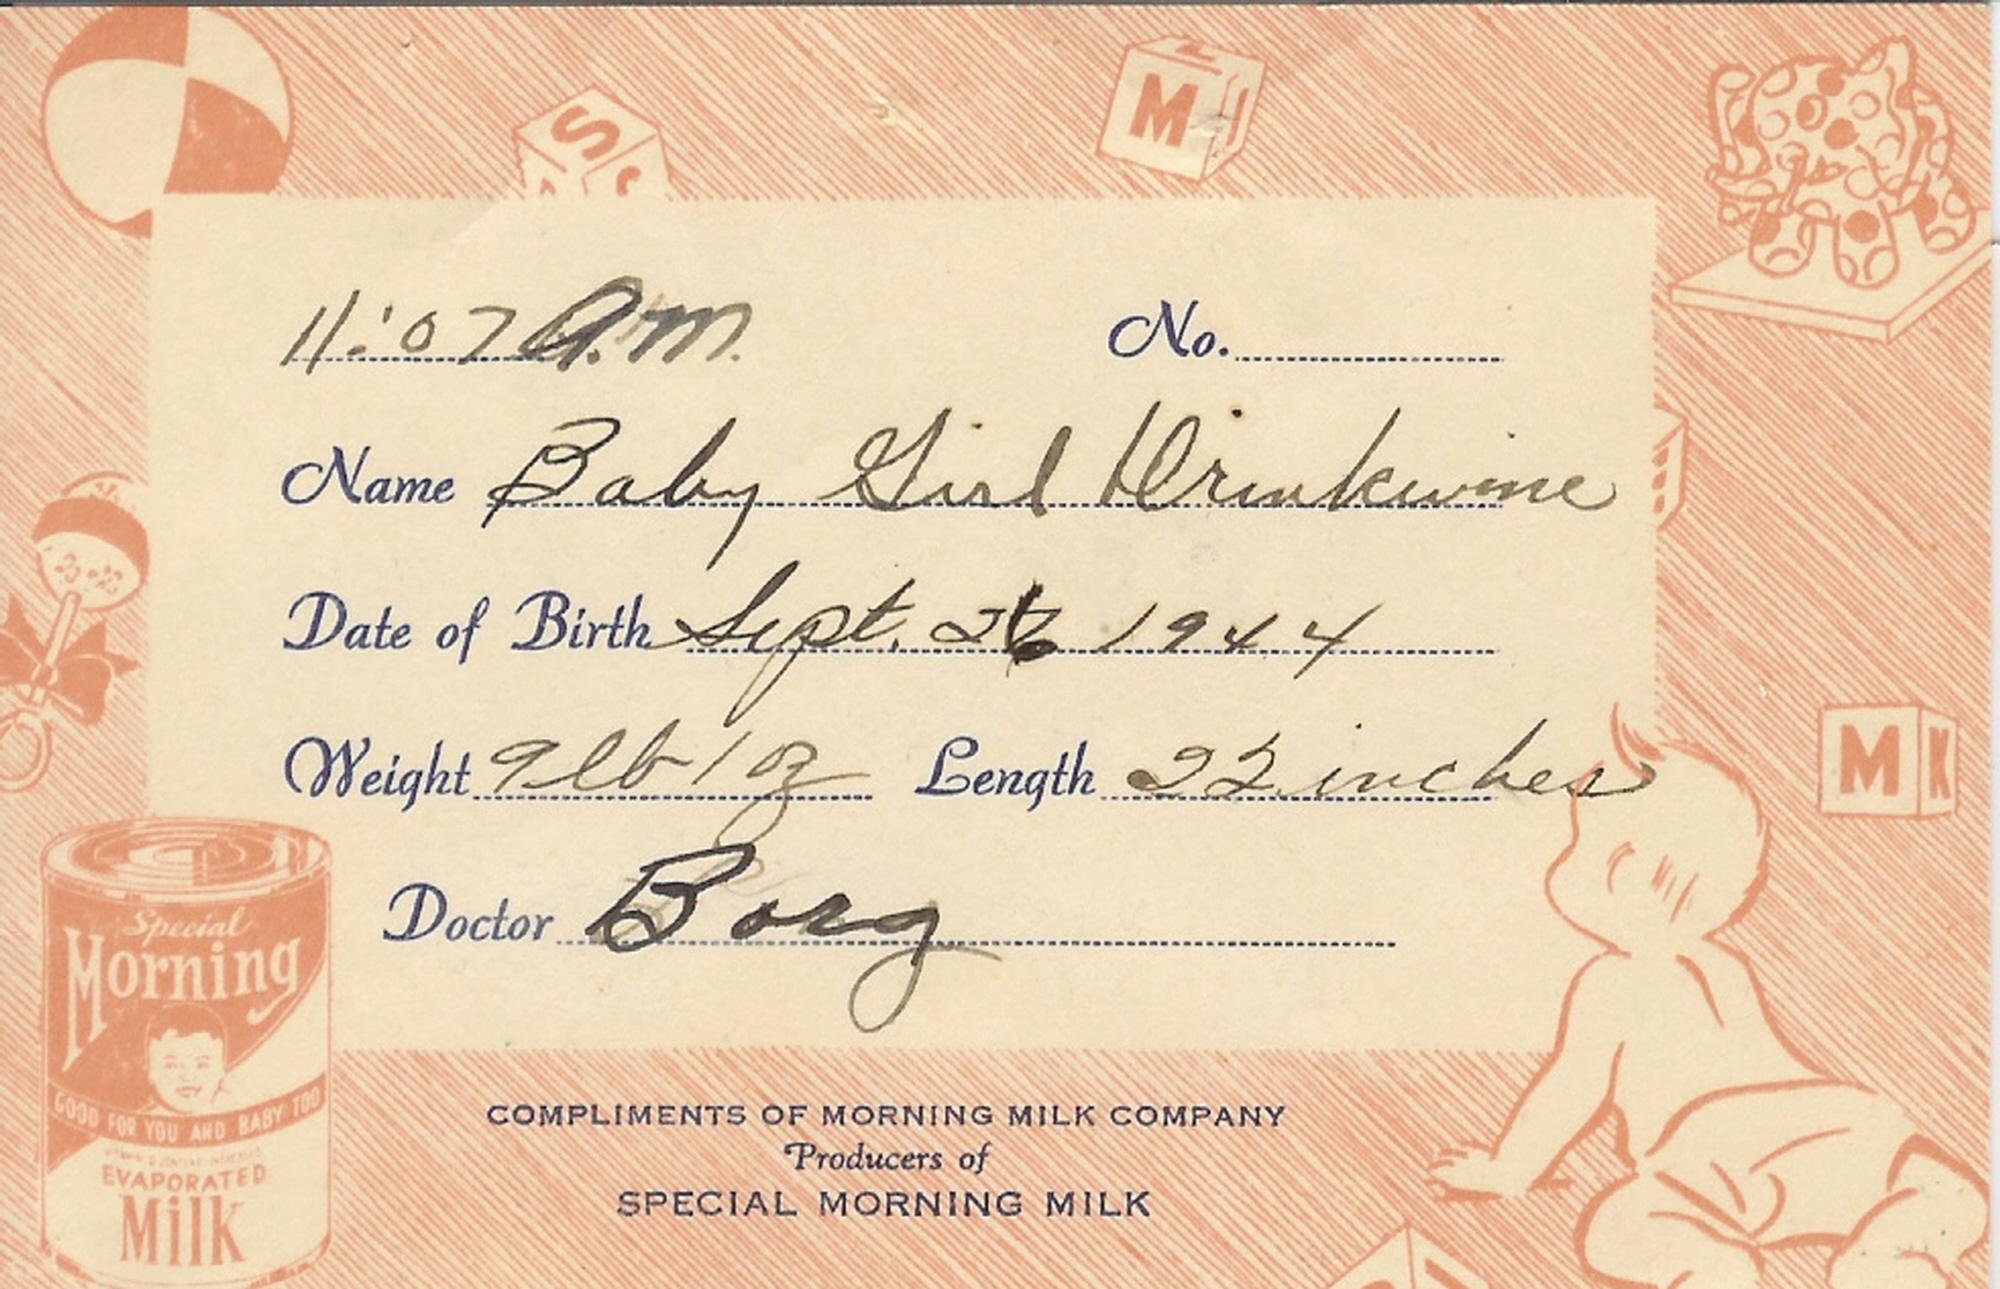 S
M
11:07 A.M. No.
Name Baby Girl Drinkwine
Date of Birth Sept. 26 1944
Weight 9 lb 1 oz Length 22 inches
M K
Doctor Borg
Special
Morning
GOOD FOR YOU AND BABY TOO
EVAPORATED
Milk
COMPLIMENTS OF MORNING MILK COMPANY
Producers of
SPECIAL MORNING MILK